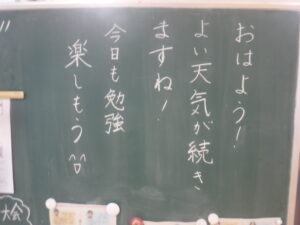 おはよう!
よい天気が続き
ますね!
今日も勉強
楽しもう
大会